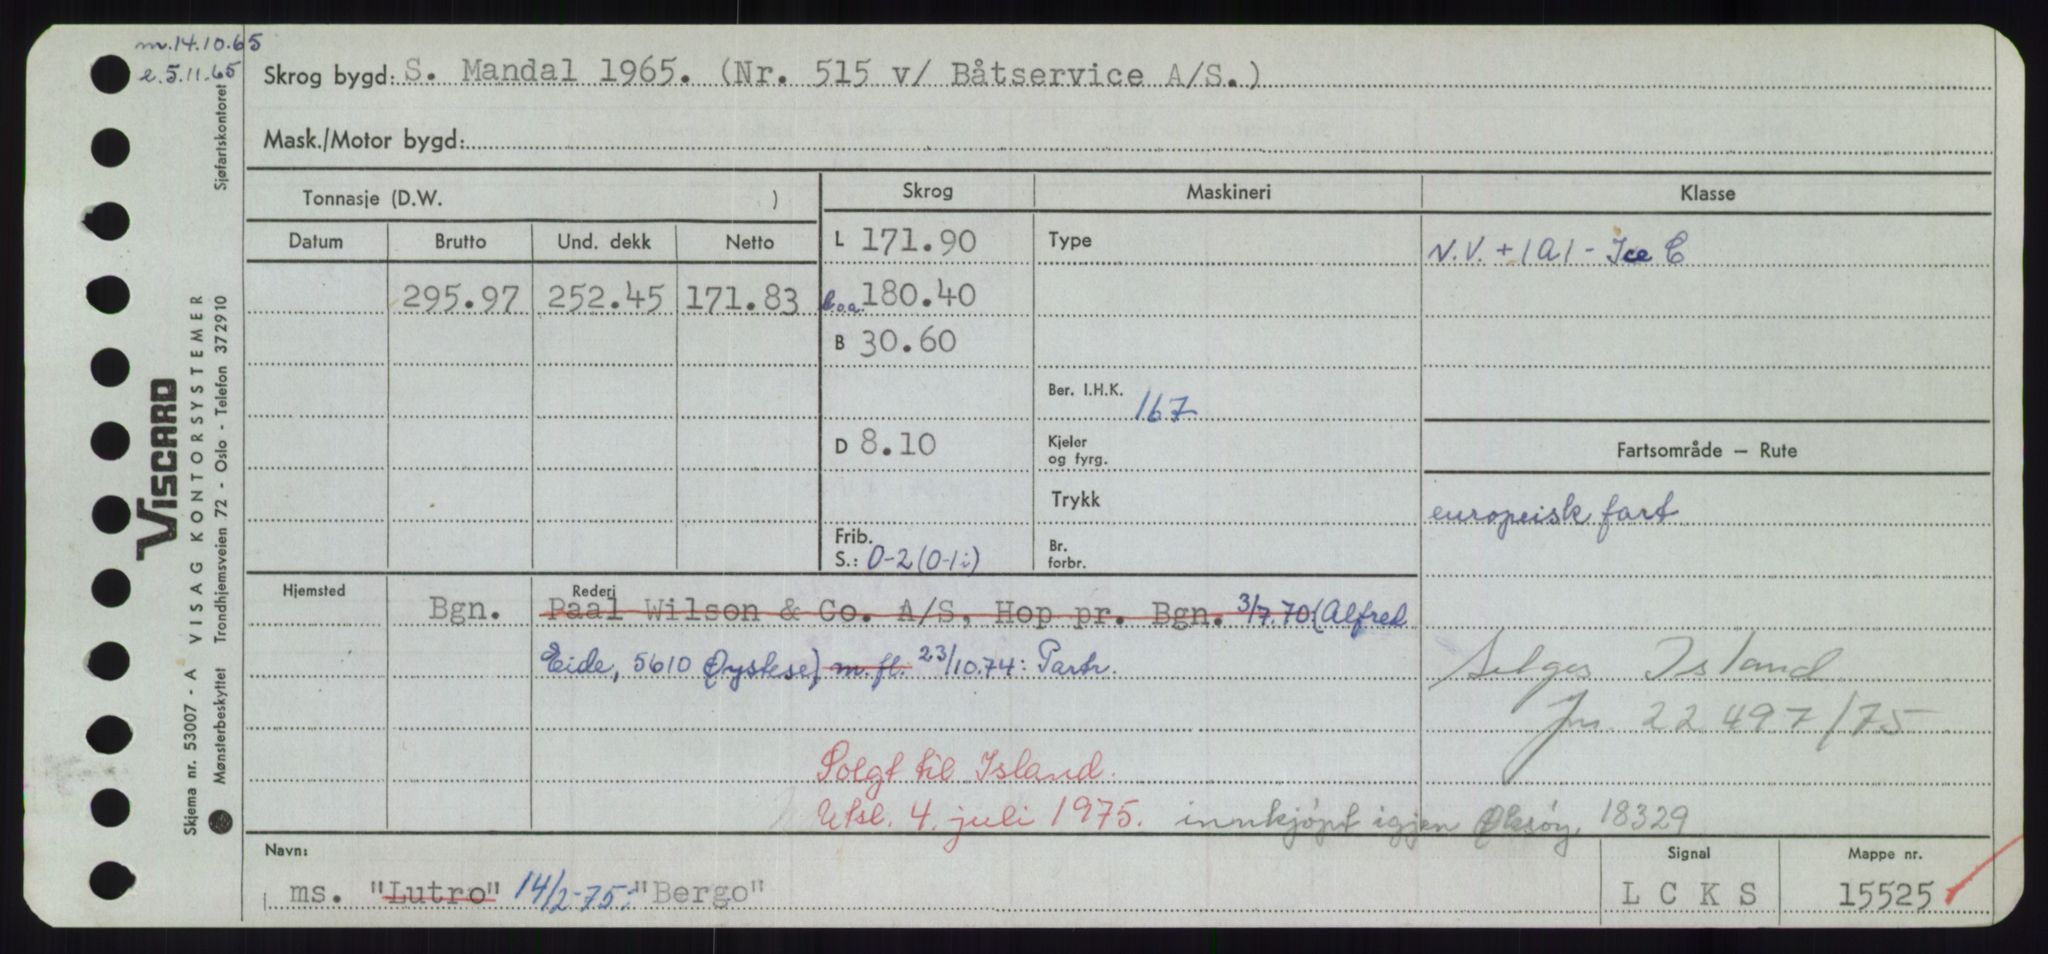 m.14.10.65
e.5.11.65
Skrog bygd: S. Mandal 1965. (Nr. 515 v/ Båtservice A/S.)
Mask./Motor bygd:
Tonnasje (D.W. )
Skrog
Maskineri
Klasse
Datum
Brutto
Und. dekk
Netto
L 171.90
Type
N.V. + 1A1 - Ice C
295.97
252.45
171.83
l.o.a. 180.40
B 30.60
Ber. I.H.K. 167
Fartsområde – Rute
D 8.10
Kjeler
og fyrg.
Trykk
europeisk fart
Frib.
S.: 0-2 (0-1i)
Br.
forbr.
Hjemsted
Rederi
Bgn.
Paal Wilson & Co. A/S, Hop pr. Bgn. 3/7.70 (Alfred
Eide, 5610 Øystese) m.fl. 23/10.74: Partr.
Selges Island
Jnr. 22497/75
Solgt til Island.
Utsl. 4. juli 1975. innkjøpt igjen Øksøy 18329
Navn:
ms. "Lutro" 14/2-75: "Bergo"
Signal
L C K S
Mappe nr.
15525
Sjøfartskontoret
VISCARD
VISAG KONTORSYSTEMER
Trondhjemsveien 72 - Oslo - Telefon 372910
Skjema nr. 53007 - A
Mønsterbeskyttet